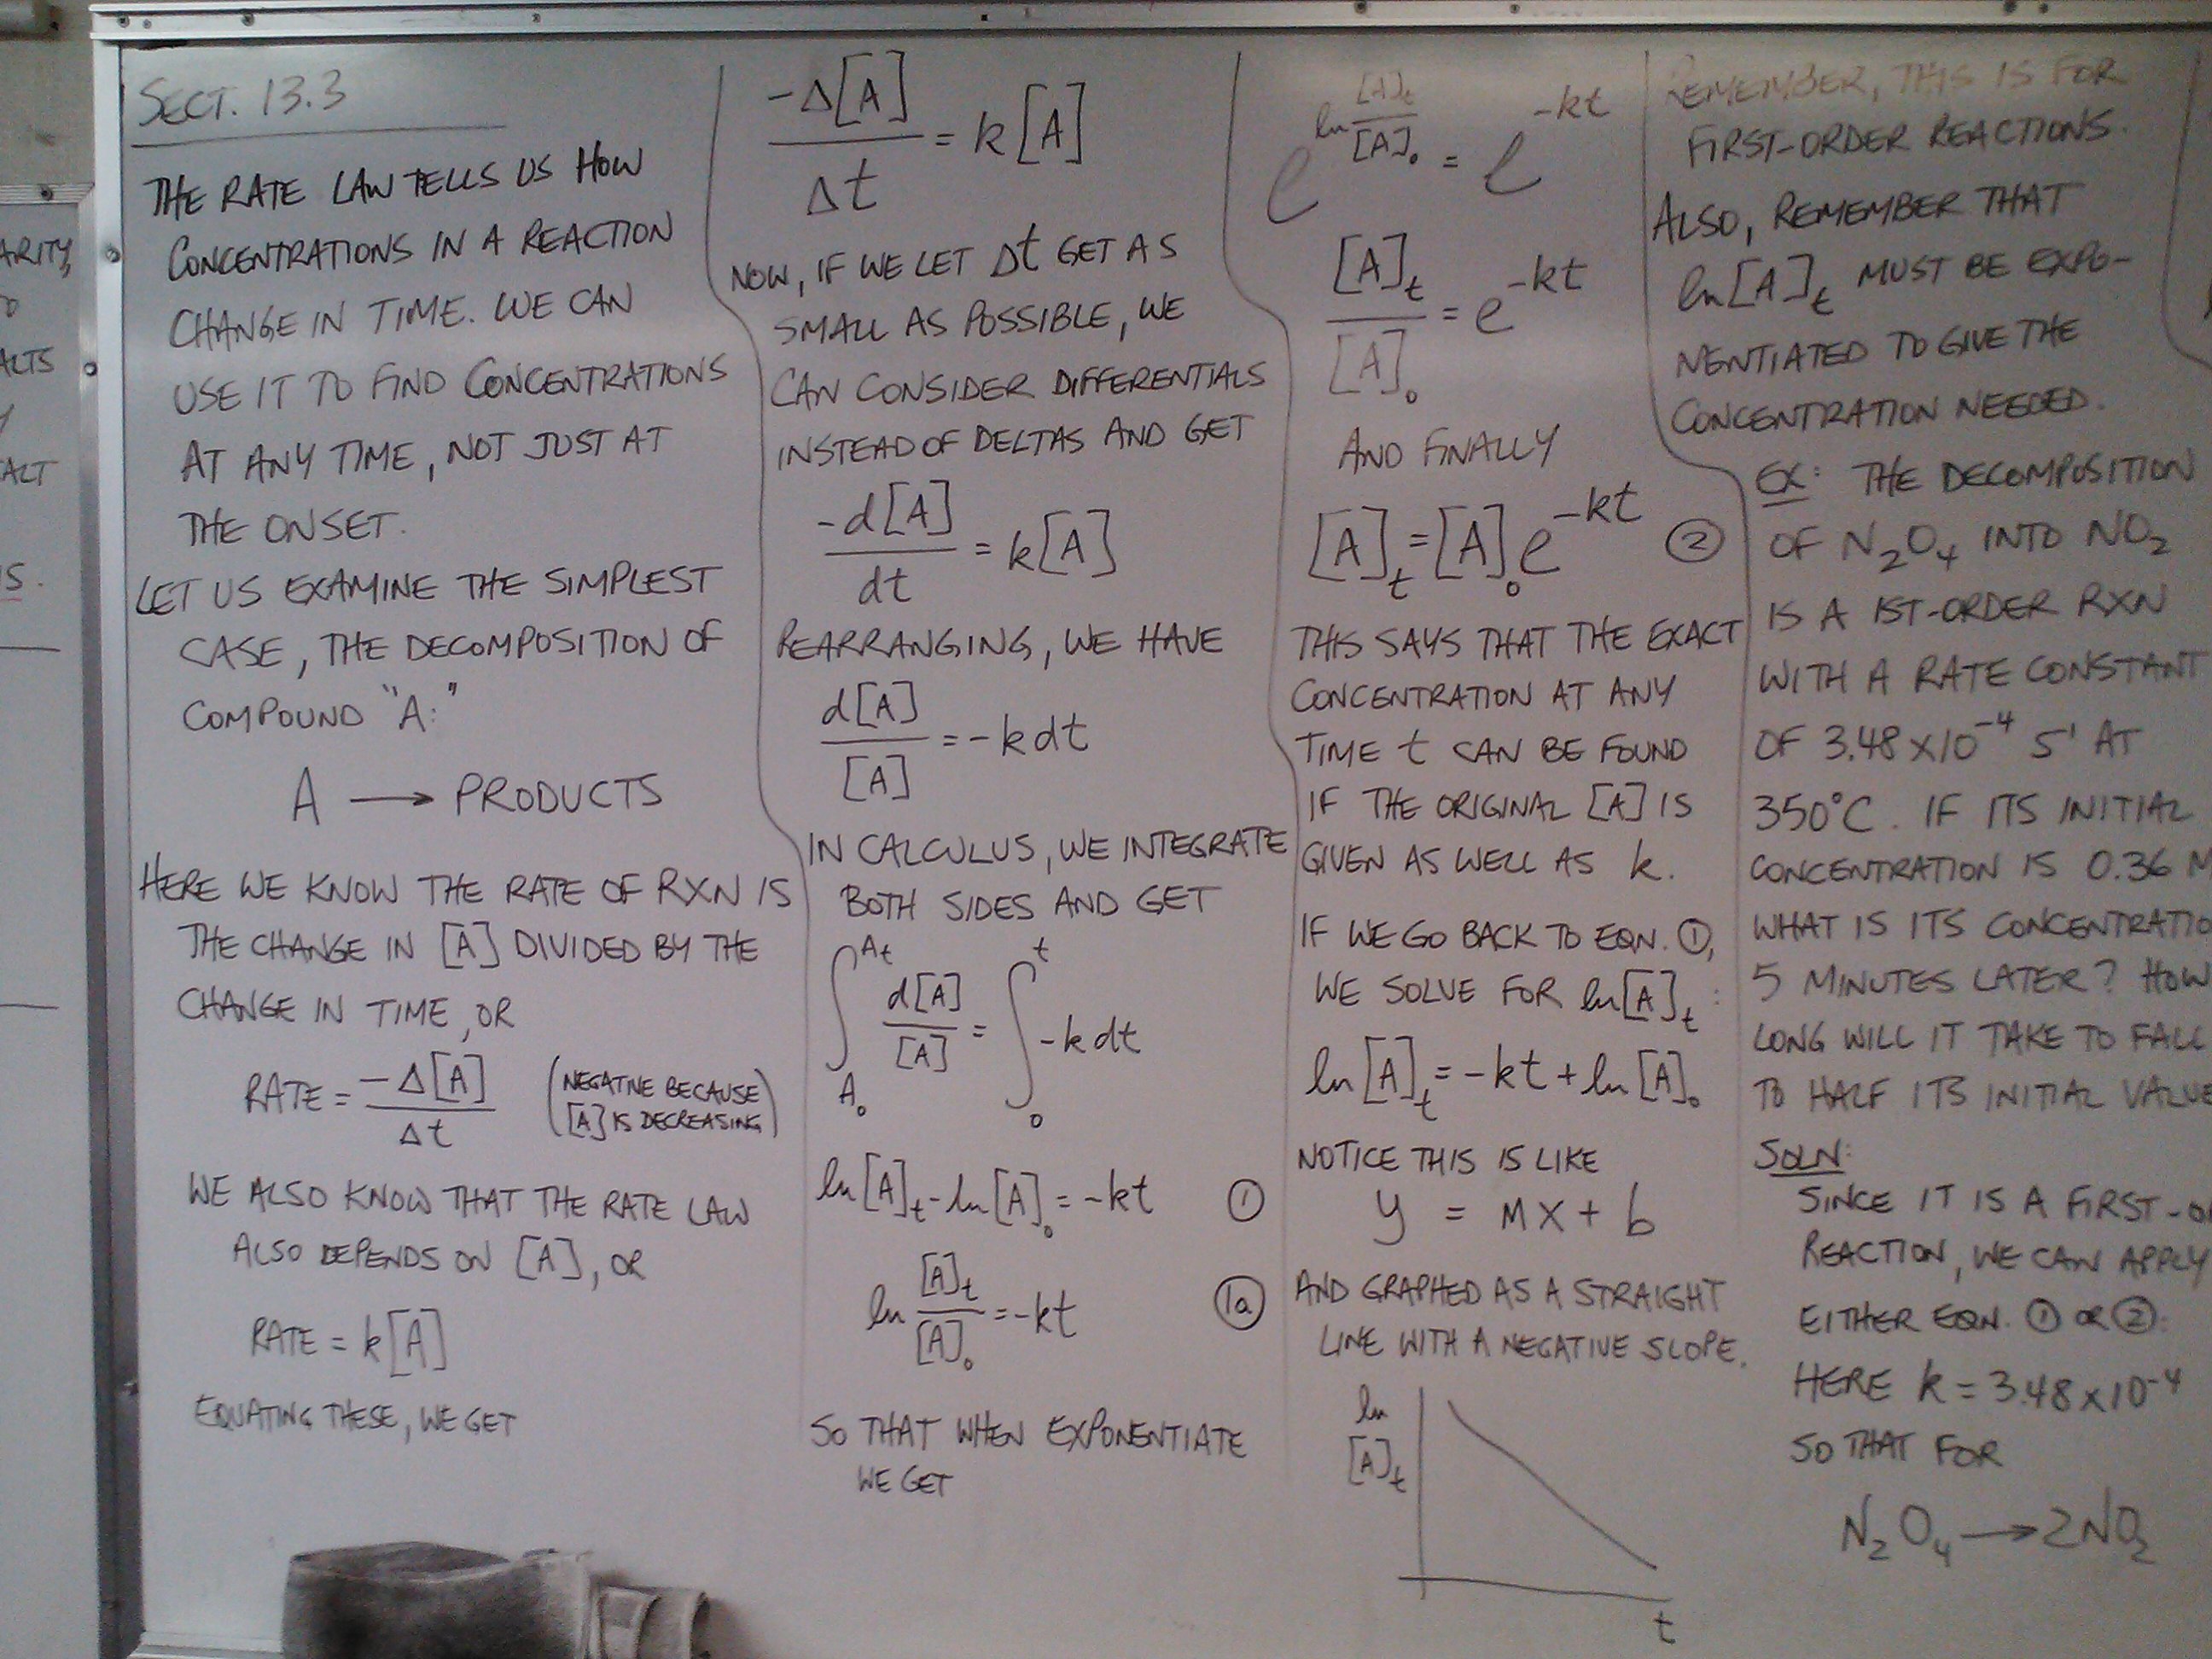 ARITY,
O
ALTS
Y
ALT
IS.
SECT. 13.3
THE RATE LAW TELLS US HOW
CONCENTRATIONS IN A REACTION
CHANGE IN TIME. WE CAN
USE IT TO FIND CONCENTRATIONS
AT ANY TIME, NOT JUST AT
THE ONSET.
LET US EXAMINE THE SIMPLEST
CASE, THE DECOMPOSITION OF
COMPOUND "A:"
A → PRODUCTS
HERE WE KNOW THE RATE OF RXN IS
THE CHANGE IN [A] DIVIDED BY THE
CHANGE IN TIME, OR
RATE = -Δ[A]/Δt (NEGATIVE BECAUSE
[A] IS DECREASING)
WE ALSO KNOW THAT THE RATE LAW
ALSO DEPENDS ON [A], OR
RATE = k[A]
EQUATING THESE, WE GET
-Δ[A]/Δt = k[A]
NOW, IF WE LET Δt GET AS
SMALL AS POSSIBLE, WE
CAN CONSIDER DIFFERENTIALS
INSTEAD OF DELTAS AND GET
-d[A]/dt = k[A]
REARRANGING, WE HAVE
d[A]/[A] = -kdt
IN CALCULUS, WE INTEGRATE
BOTH SIDES AND GET
∫_{A₀}^{At} d[A]/[A] = ∫_0^t -kdt
ln[A]ₜ - ln[A]₀ = -kt ①
ln [A]ₜ/[A]₀ = -kt (1a)
SO THAT WHEN EXPONENTIATE
WE GET
e^{ln [A]ₜ/[A]₀} = e^{-kt}
[A]ₜ/[A]₀ = e^{-kt}
AND FINALLY
[A]ₜ = [A]₀e^{-kt} ②
THIS SAYS THAT THE EXACT
CONCENTRATION AT ANY
TIME t CAN BE FOUND
IF THE ORIGINAL [A] IS
GIVEN AS WELL AS k.
IF WE GO BACK TO EQN. ①,
WE SOLVE FOR ln[A]ₜ:
ln[A]ₜ = -kt + ln[A]₀
NOTICE THIS IS LIKE
y = mx + b
AND GRAPHED AS A STRAIGHT
LINE WITH A NEGATIVE SLOPE.
ln
[A]ₜ
t
REMEMBER, THIS IS FOR
FIRST-ORDER REACTIONS.
ALSO, REMEMBER THAT
ln[A]ₜ MUST BE EXPO-
NENTIATED TO GIVE THE
CONCENTRATION NEEDED.
EX: THE DECOMPOSITION
OF N₂O₄ INTO NO₂
IS A 1ST-ORDER RXN
WITH A RATE CONSTANT
OF 3.48 x 10⁻⁴ S¹ AT
350°C. IF ITS INITIAL
CONCENTRATION IS 0.36 M
WHAT IS ITS CONCENTRATIO
5 MINUTES LATER? HOW
LONG WILL IT TAKE TO FALL
TO HALF ITS INITIAL VALUE
SOLN:
SINCE IT IS A FIRST-O
REACTION, WE CAN APPLY
EITHER EQN. ① OR ②:
HERE k = 3.48 x 10⁻⁴
SO THAT FOR
N₂O₄ → 2NO₂